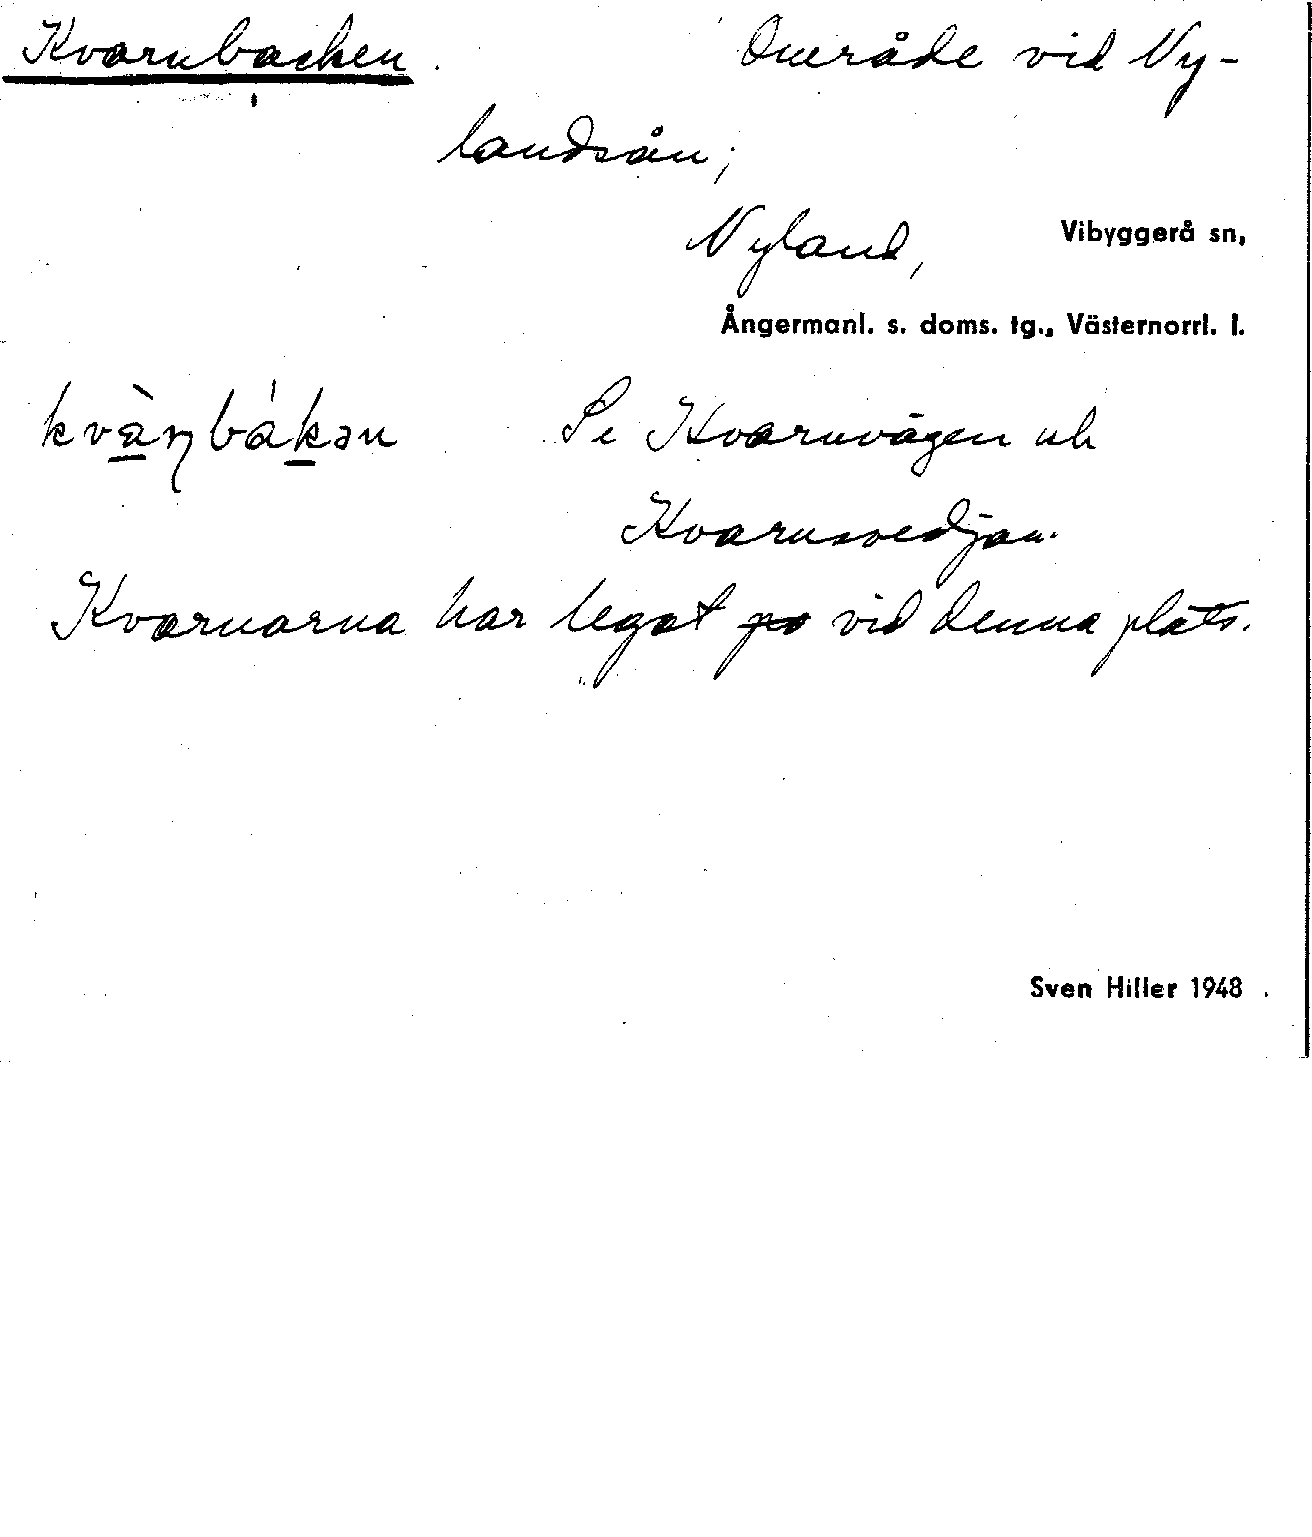 Kvarnbacken. Område vid Ny-
landsån;
Nyland, Vibyggerå sn,
Ångermanl. s. doms. tg., Västernorrl. l.
kvàṇbákən Se Kvarnvägen och
Kvarnsvedjan.
Kvarnarna har legat på vid denna plats.
Sven Hiller 1948.